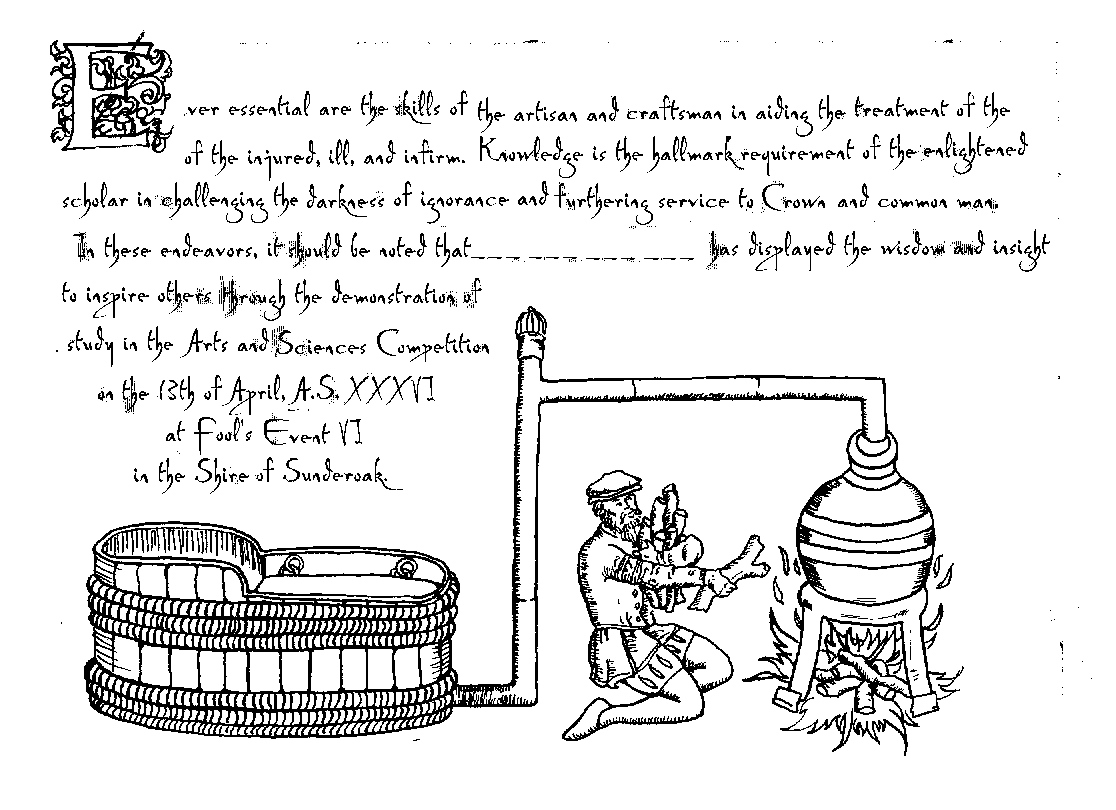 Ever essential are the skills of the artisan and craftsman in aiding the treatment of the
of the injured, ill, and infirm. Knowledge is the hallmark requirement of the enlightened
scholar in challenging the darkness of ignorance and furthering service to Crown and common man.
In these endeavors, it should be noted that_______________ has displayed the wisdom and insight
to inspire others through the demonstration of
study in the Arts and Sciences Competition
on the 13th of April, A.S. XXXVI
at Fool's Event VI
in the Shire of Sunderoak.